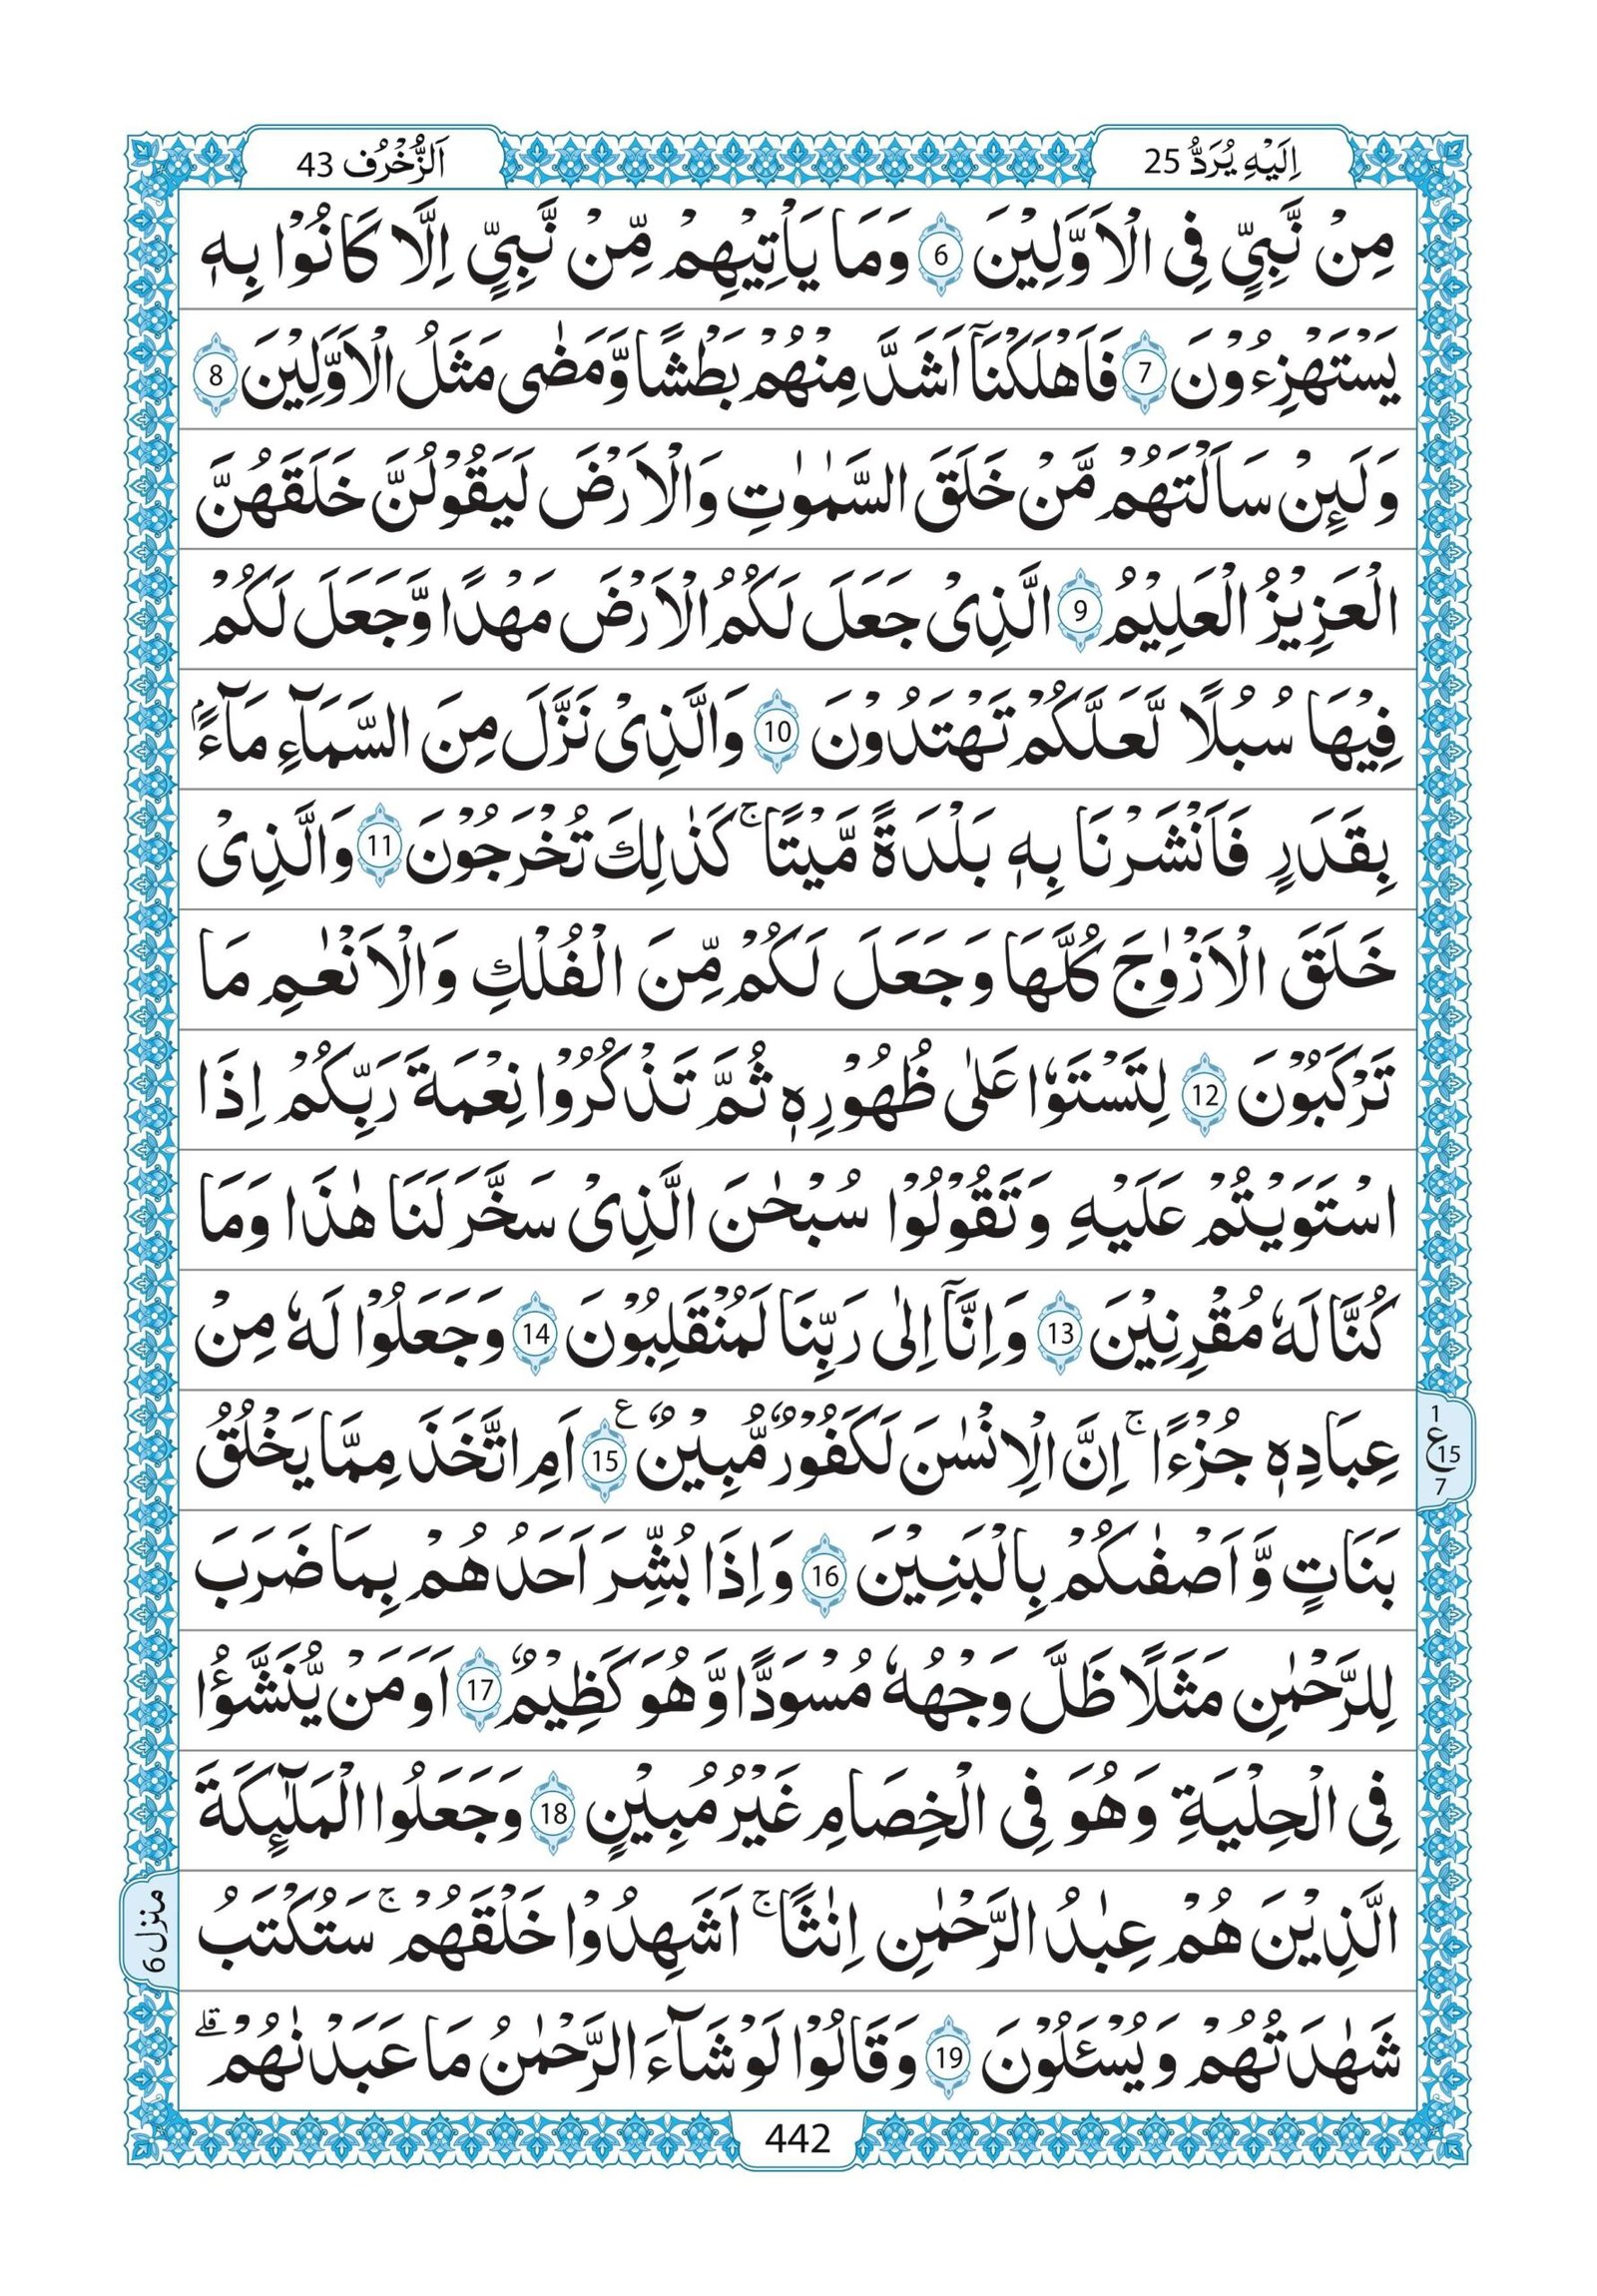 اِلَيْهِ يُرَدُّ 25
اَلزُّخْرُف 43
مِنْ نَّبِيٍّ فِى الْاَوَّلِيْنَ 6 وَمَا يَاْتِيْهِمْ مِّنْ نَّبِيٍّ اِلَّا كَانُوْا بِهٖ
يَسْتَهْزِءُوْنَ 7 فَاَهْلَكْنَآ اَشَدَّ مِنْهُمْ بَطْشًا وَّمَضٰى مَثَلُ الْاَوَّلِيْنَ 8
وَلَىِٕنْ سَاَلْتَهُمْ مَّنْ خَلَقَ السَّمٰوٰتِ وَالْاَرْضَ لَيَقُوْلُنَّ خَلَقَهُنَّ
الْعَزِيْزُ الْعَلِيْمُ 9 الَّذِىْ جَعَلَ لَكُمُ الْاَرْضَ مَهْدًا وَّجَعَلَ لَكُمْ
فِيْهَا سُبُلًا لَّعَلَّكُمْ تَهْتَدُوْنَ 10 وَالَّذِىْ نَزَّلَ مِنَ السَّمَآءِ مَآءًۢ
بِقَدَرٍ فَاَنْشَرْنَا بِهٖ بَلْدَةً مَّيْتًا ۚ كَذٰلِكَ تُخْرَجُوْنَ 11 وَالَّذِىْ
خَلَقَ الْاَزْوٰجَ كُلَّهَا وَجَعَلَ لَكُمْ مِّنَ الْفُلْكِ وَالْاَنْعٰمِ مَا
تَرْكَبُوْنَ 12 لِتَسْتَوٗا عَلٰى ظُهُوْرِهٖ ثُمَّ تَذْكُرُوْا نِعْمَةَ رَبِّكُمْ اِذَا
اسْتَوَيْتُمْ عَلَيْهِ وَتَقُوْلُوْا سُبْحٰنَ الَّذِىْ سَخَّرَ لَنَا هٰذَا وَمَا
كُنَّا لَهٗ مُقْرِنِيْنَ 13 وَاِنَّآ اِلٰى رَبِّنَا لَمُنْقَلِبُوْنَ 14 وَجَعَلُوْا لَهٗ مِنْ
عِبَادِهٖ جُزْءًا ۚ اِنَّ الْاِنْسٰنَ لَكَفُوْرٌ مُّبِيْنٌ ع 15 اَمِ اتَّخَذَ مِمَّا يَخْلُقُ
1
ع 15
7
بَنَاتٍ وَّاَصْفٰىكُمْ بِالْبَنِيْنَ 16 وَاِذَا بُشِّرَ اَحَدُهُمْ بِمَا ضَرَبَ
لِلرَّحْمٰنِ مَثَلًا ظَلَّ وَجْهُهٗ مُسْوَدًّا وَّهُوَ كَظِيْمٌ 17 اَوَمَنْ يُّنَشَّؤُا
فِى الْحِلْيَةِ وَهُوَ فِى الْخِصَامِ غَيْرُ مُبِيْنٍ 18 وَجَعَلُوا الْمَلٰٓىِٕكَةَ
الَّذِيْنَ هُمْ عِبٰدُ الرَّحْمٰنِ اِنٰثًا ۚ اَشَهِدُوْا خَلْقَهُمْ ۚ سَتُكْتَبُ
منزل 6
شَهٰدَتُهُمْ وَيُسْـَٔلُوْنَ 19 وَقَالُوْا لَوْ شَآءَ الرَّحْمٰنُ مَا عَبَدْنٰهُمْ ۗ
442